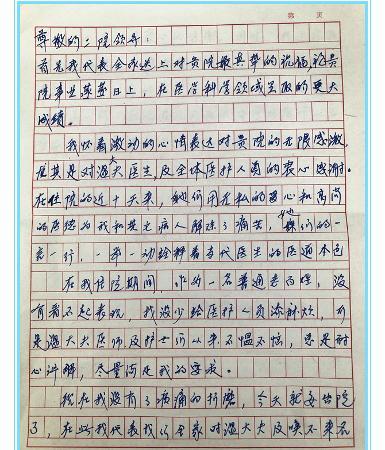 第 页
尊敬的二院领导：
首先我代表全家送上对贵院最真挚的祝福，祝贵
院事业蒸蒸日上，在医学科学领域里取的更大
成绩。
我怀着激动的心情表达对贵院的无限感激，
尤其是对温大夫医生，及全体医护人员的衷心感谢。
在住院的近十天来，他们用无私的爱心和高尚
的医德为我和其它病人解除了痛苦，她们的一
言一行，一举一动诠释着当代医生的医道本色
在我住院期间，作的一名普通老百姓，没
有看不起表现，我没少给医护人员添麻烦，可
是温大夫医师及护士们从来不愠不恼，总是耐
心讲解，尽量满足我的要求。
现在我没有了病痛的折磨，今天就要出院
了，在此我代表我们全家对温大夫及